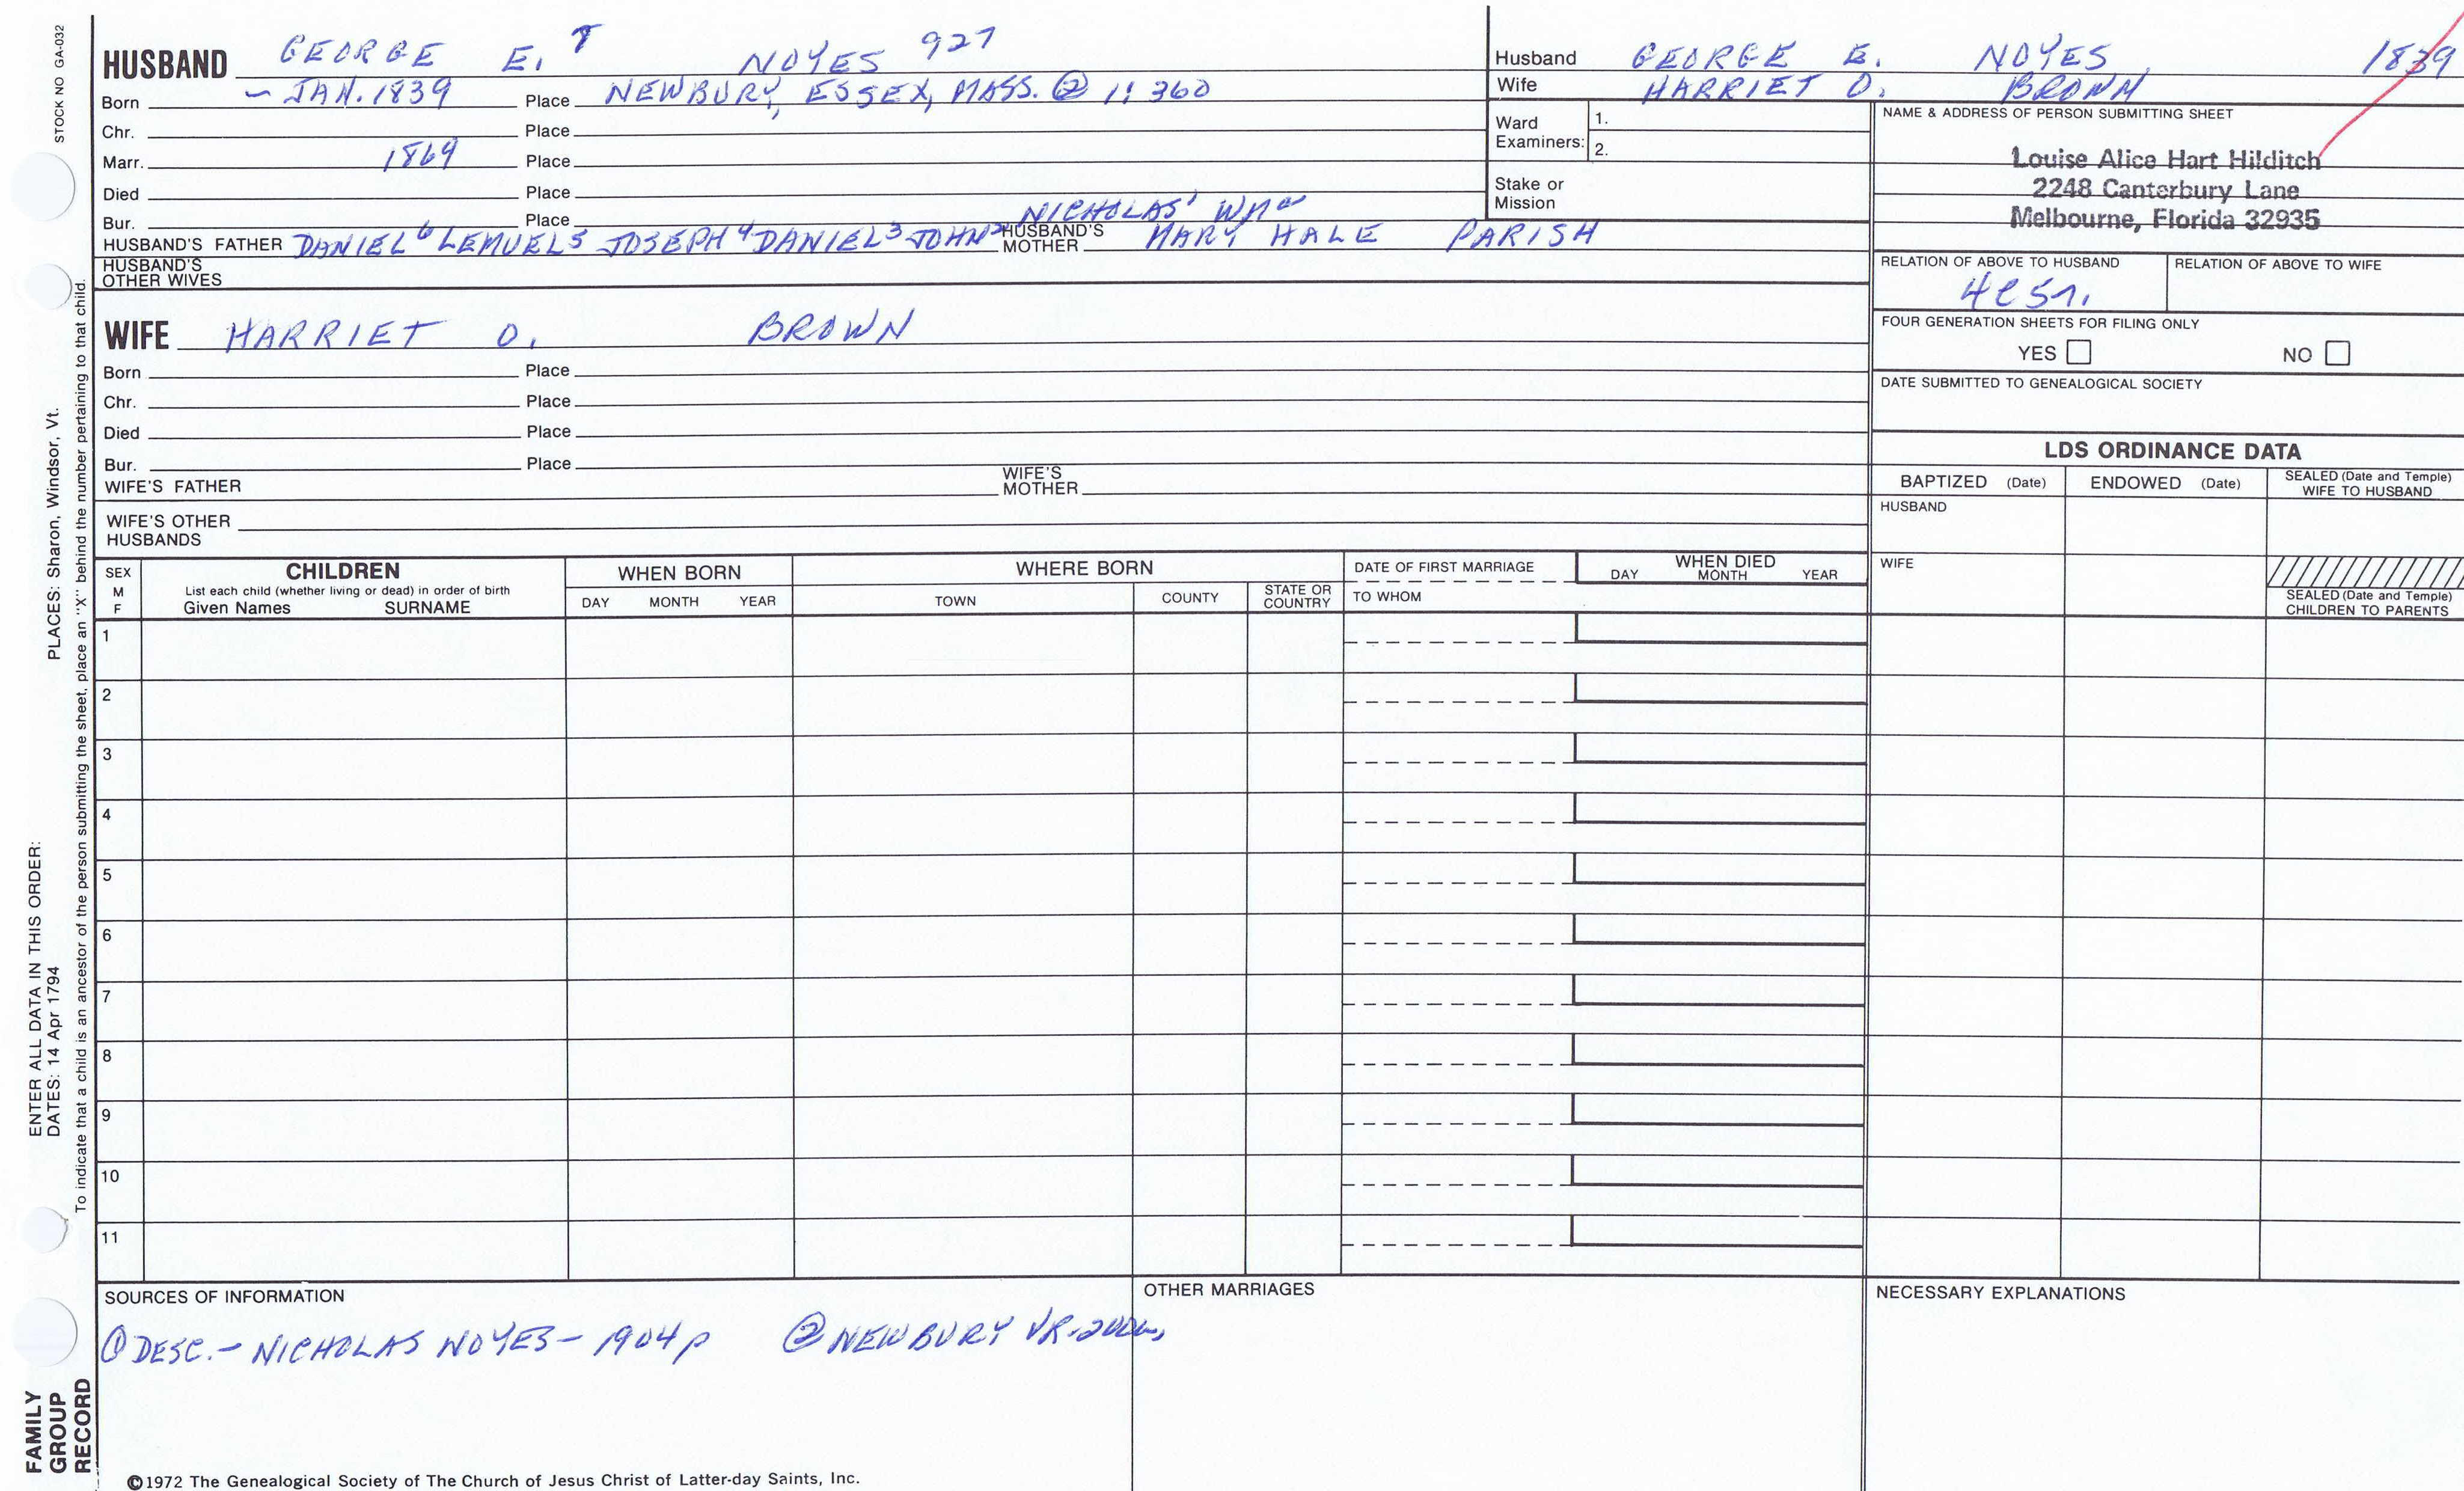 STOCK NO GA-032
HUSBAND GEORGE E. 7 NOYES 927
Born ~ JAN. 1839 Place NEWBURY, ESSEX, MASS. ② 1:360
Chr. Place
Marr. 1869 Place
Died Place
Bur. Place NICHOLAS¹ Wm
HUSBAND'S FATHER DANIEL⁶ LEMUEL⁵ JOSEPH⁴ DANIEL³ JOHN² HUSBAND'S MOTHER MARY HALE PARISH
HUSBAND'S OTHER WIVES
WIFE HARRIET O. BROWN
Born Place
Chr. Place
Died Place
Bur. Place
WIFE'S FATHER WIFE'S MOTHER
WIFE'S OTHER HUSBANDS
Husband GEORGE E. NOYES 1839
Wife HARRIET O. BROWN
Ward Examiners: 1.
2.
Stake or Mission
NAME & ADDRESS OF PERSON SUBMITTING SHEET
Louise Alice Hart Hilditch
2248 Canterbury Lane
Melbourne, Florida 32935
RELATION OF ABOVE TO HUSBAND RELATION OF ABOVE TO WIFE
FOUR GENERATION SHEETS FOR FILING ONLY
YES NO
DATE SUBMITTED TO GENEALOGICAL SOCIETY
LDS ORDINANCE DATA
BAPTIZED (Date) ENDOWED (Date) SEALED (Date and Temple) WIFE TO HUSBAND
HUSBAND
WIFE
SEALED (Date and Temple) CHILDREN TO PARENTS
SEX M F
CHILDREN
List each child (whether living or dead) in order of birth
Given Names SURNAME
WHEN BORN
DAY MONTH YEAR
WHERE BORN
TOWN COUNTY STATE OR COUNTRY
DATE OF FIRST MARRIAGE
TO WHOM
WHEN DIED
DAY MONTH YEAR
1
2
3
4
5
6
7
8
9
10
11
SOURCES OF INFORMATION
① DESC. - NICHOLAS NOYES - 1904 p ② NEWBURY VR-
OTHER MARRIAGES
NECESSARY EXPLANATIONS
©1972 The Genealogical Society of The Church of Jesus Christ of Latter-day Saints, Inc.
ENTER ALL DATA IN THIS ORDER:
DATES: 14 Apr 1794 PLACES: Sharon, Windsor, Vt.
To indicate that a child is an ancestor of the person submitting the sheet, place an "X" behind the number pertaining to that child.
FAMILY
GROUP
RECORD